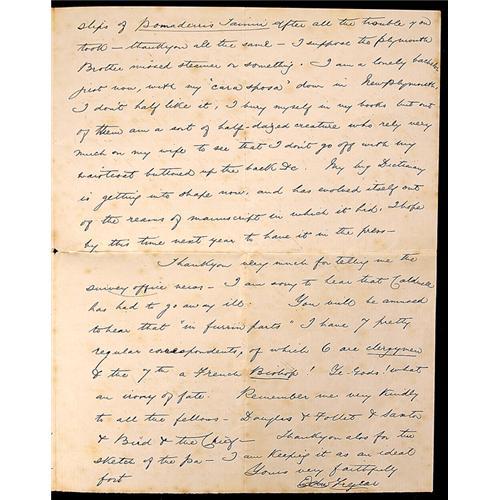 slips of Pomaderris Tainui after all the trouble you
took – thankyou all the same – I suppose the Plymouth
Brother missed steamer or something. I am a lonely bachelor
just now, with my "cara sposa" down in New Plymouth,
I don't half like it, I bury myself in my books but out
of them am a sort of half-dazed creature who rely very
much on my wife to see that I don't go off with my
waistcoat buttoned up the back &c. My big Dictionary
is getting into shape now, and has evolved itself out
of the reams of manuscript in which it hid, I hope
by this time next year to have it in the press –
Thankyou very much for telling me the
survey office news – I am sorry to hear that
has had to go away ill. You will be amused
to hear that "in furrin parts" I have 7 pretty
regular correspondents, of which 6 are clergymen
& the 7th a French Bishop! Ye Gods! what
an irony of fate. Remember me very kindly
to all the fellows – Douglas & Follet &
& Bird & the Chief – Thankyou also for the
sketch of the pa – I am keeping it as an ideal
fort Yours very faithfully
Edw Tregear